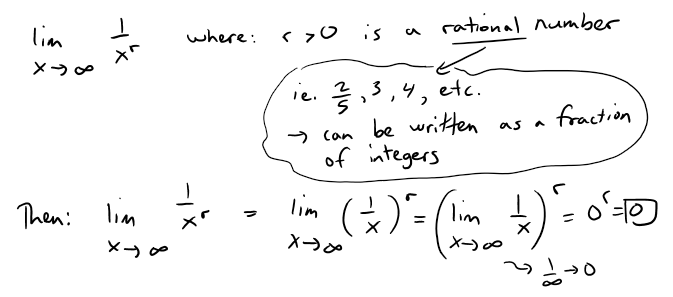 lim x→∞ 1/x^r where: r > 0 is a rational number
ie. 2/5, 3, 4, etc.
→ can be written as a fraction
of integers
Then: lim x→∞ 1/x^r = lim x→∞ (1/x)^r = (lim x→∞ 1/x)^r = 0^r = 0
↝ 1/∞ → 0